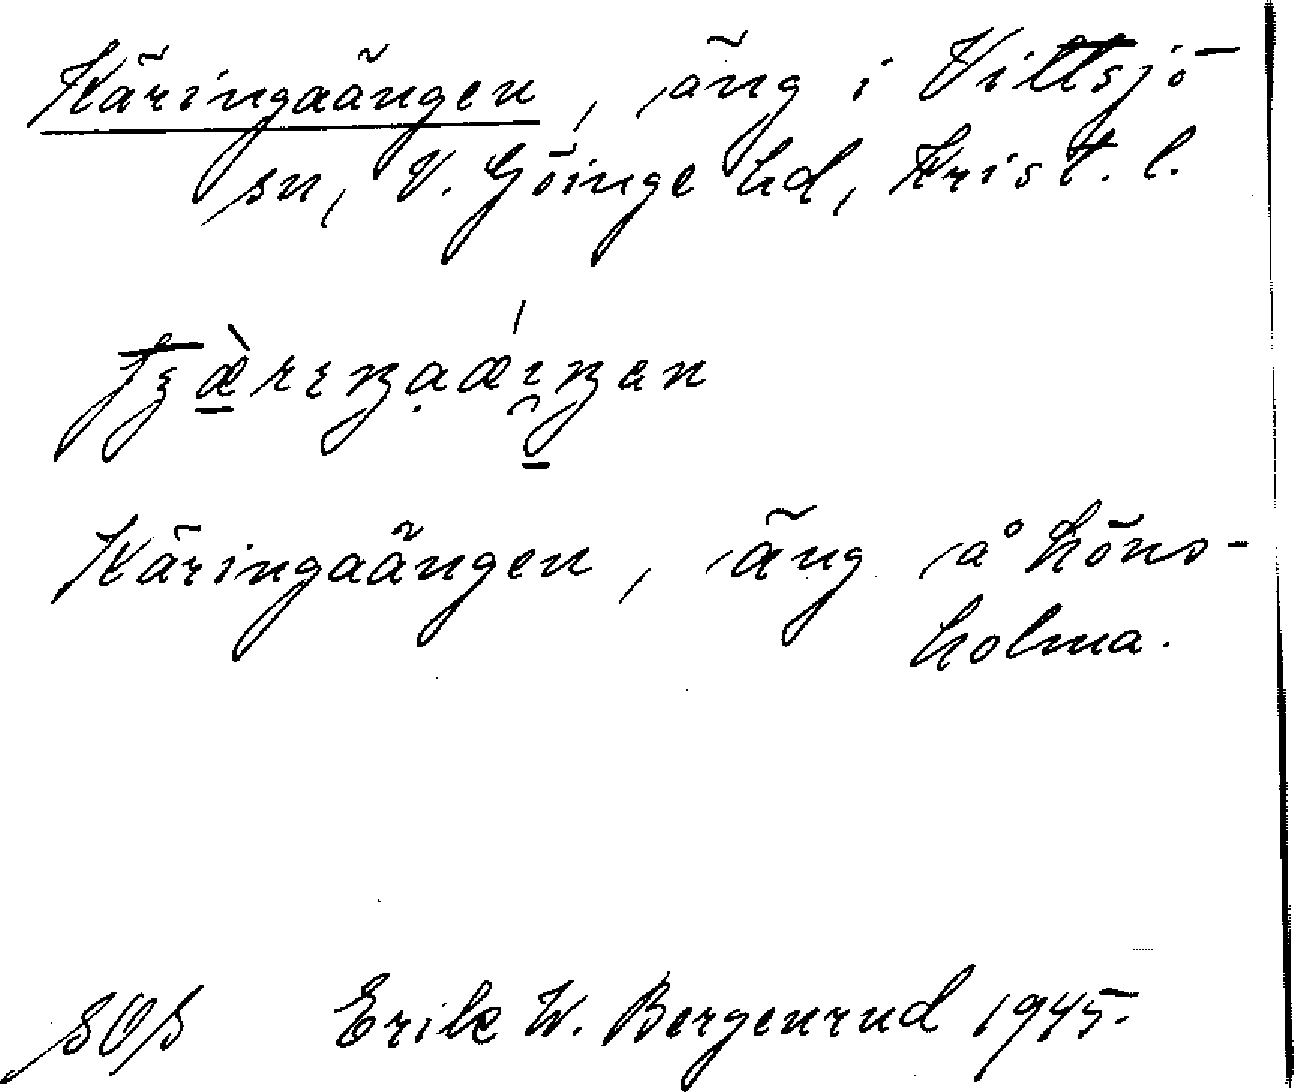 Käringaängen, äng i Vittsjö
sn, V. Göinge hd, Krist. l.
Käringaängen, äng å Höns-
holma.
SOS Erik W. Bergenrud 1945.